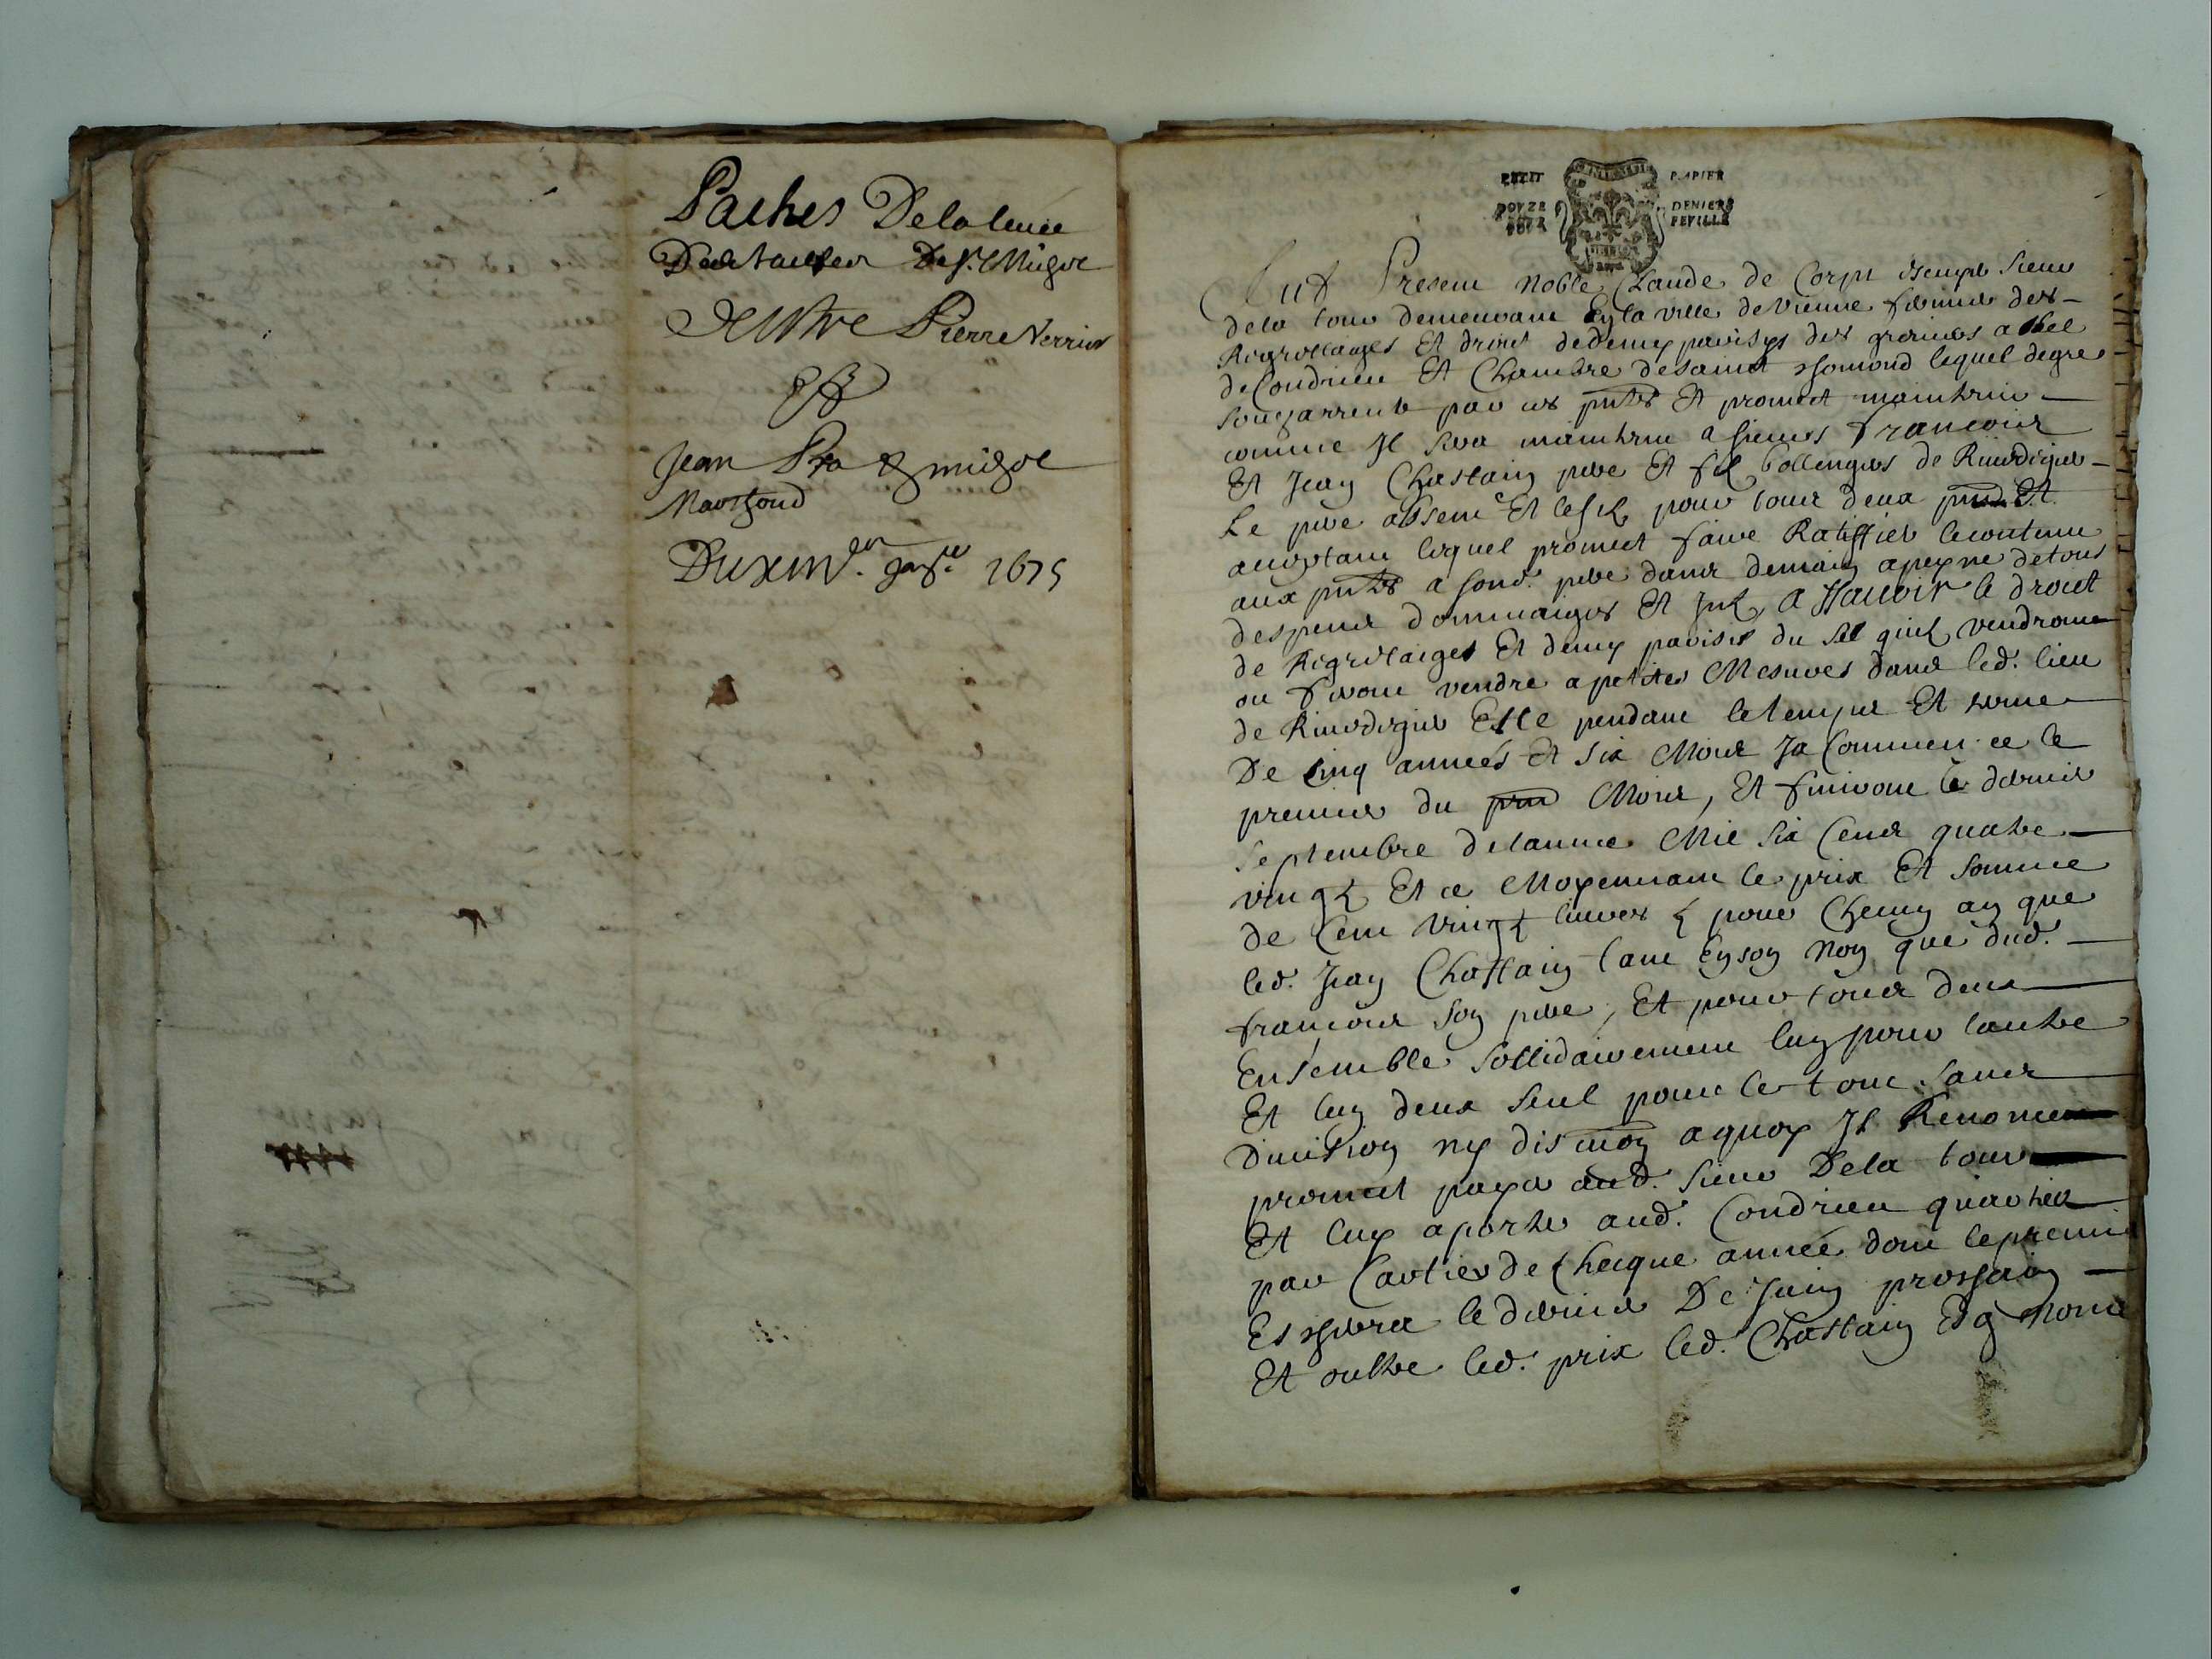 Paches Delaleuée
Des tailles De St. Migol
Entre Pierre Verrier
Et
Jean migol
Marchand
Du xiiiie. janr. 1675
PETIT PAPIER
DOVZE DENIERS
POVR FEVILLE
Fut Present Noble Claude de Corps Sieur
dela tour demeurant En la ville de Vienne fermier des
Regrottaiges Et droict de demy parisys des greniers a sel
de Condrieu Et Chambre de sainct lequel de gre
soubzarrente par ces pntes Et promect maintenir
comme Il sera maintenu a sieurs francois
Et Jean Chastain pere Et fils bollengers de Rivedigier
Le pere absent Et le fils pour tous deux pnt Et
acceptant lequel promect faire Ratiffier le contenu
aux pntes a sond. pere dans demain a peyne de tous
despens dommaiges Et intz A Scauoir le droict
de Regretaiges Et demy parisis du sel quils vendront
ou feront vendre a petites Mesures dans led. lieu
de Rivedigier Et ce pendant le temps Et terme
De Cinq années Et Six Mois Ja Commencé le
premier du pnt Mois, Et finiront le dernier
Septembre de lannee Mil Six Cens quatre
vingtz Et ce Moyennant le prix Et Somme
de Cent Vingt liures pour Chcun an que
led. Jean Chastain tant En son Nom que dud.
francois son pere, Et pour tous deux
Ensemble Sollidairement lun pour lautre
Et lun deux Seul pour le tout Sans
Diuision ny discution a quoy Il Renonce
promect payer aud. Sieur Dela tour
Et luy aporter aud. Condrieu quartier
par Cartier de Chacque année dont le premier
Eschera le dernier De Juin prochain
Et oultre led. prix led. Chastain Esd. noms